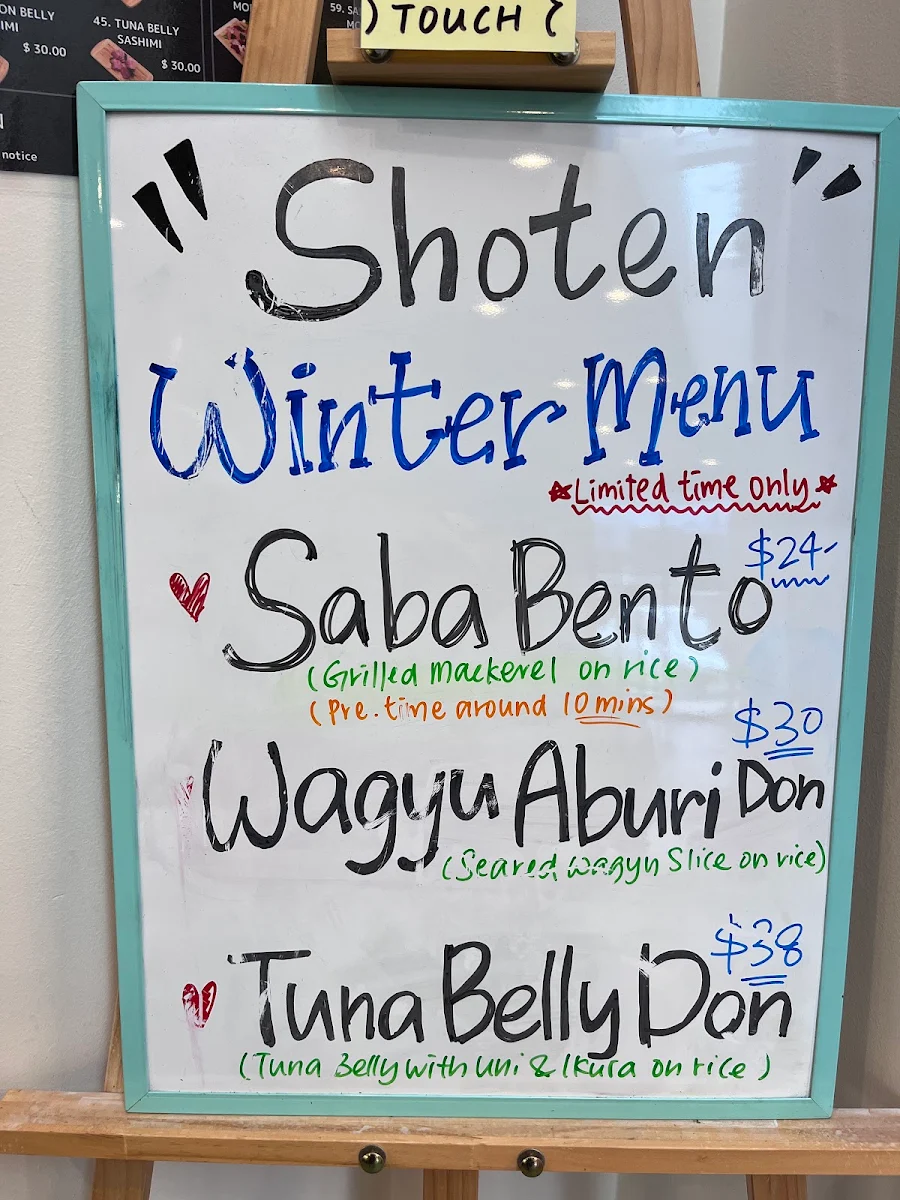 ON BELLY
IMI
$ 30.00
45. TUNA BELLY
SASHIMI
$ 30.00
59. SA
notice
) TOUCH (
"Shoten"
Winter Menu
Limited time only
Saba Bento $24-
(Grilled mackerel on rice)
(Pre. time around 10 mins)
Wagyu Aburi Don $30
(Seared wagyu Slice on rice)
Tuna Belly Don $38
(Tuna Belly with uni & Ikura on rice)